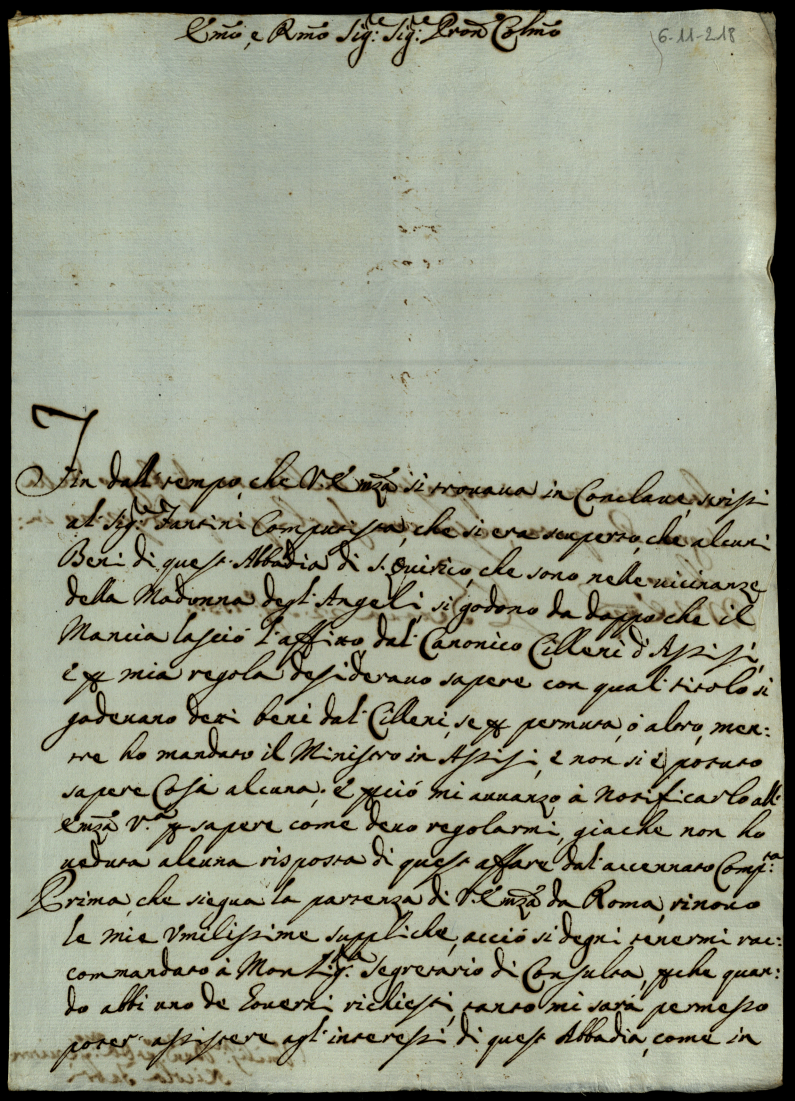 Emo, e Rmo Sig:re Sig:re Pron Colmo
6-11-218
Fin dall tempo, che V. Emza si trovava in Conclave, scrissi
al Sig:re Fantini Computista, che si era scuperto, che alcuni
Beni di quest Abbadia di S. Quirico, che sono nelle vicinanze
della Madonna degl'Angeli si godono da doppo che il
Mancia lasció l'affitto, dal Canonico Cilleni d'Assisi,
e p mia regola desiderano sapere con qual titolo si
godevano detti beni dal Cilleni, se p permuta, ó altro, men:
tre ho mandato il Ministro in Assisi, e non si é potuto
sapere Cosa alcuna. e pció mi avvanzo á Notificarlo all'
Emza V.a p sapere come devo regolarmi, giache non ho
veduta alcuna risposta di quest affare dal accennato Comp:ta
Prima, che siegua la partenza di V. Emza da Roma, rinovo
le mie Umilissime suppliche, acció si degni tenermi rac:
commandato á Monsig:r Segretario di Consulta, pche quan:
do abbi uno de Governi richiesti, tanto mi sará permesso
poter assistere agl'interessi di quest Abbadia, come in